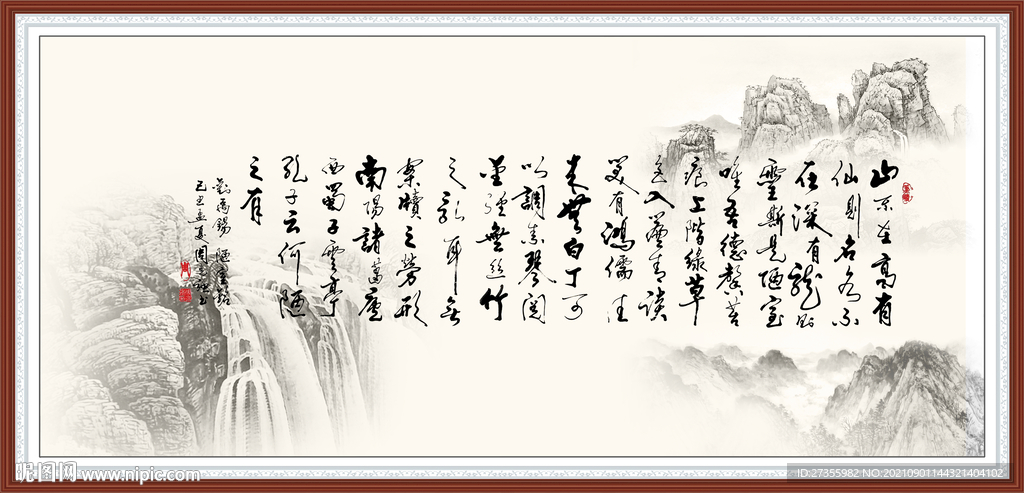 山不在高有
仙則名水不
在深有龍則
靈斯是陋室
唯吾德馨苔
痕上階緑草
色入簾青談
笑有鴻儒往
来無白丁可
以調素琴閱
金經無絲竹
之亂耳無
案牘之勞形
南陽諸葛廬
西蜀子雲亭
孔子云何陋
之有
劉禹錫 陋室銘
己丑孟夏周书
昵图网 www.nipic.com
ID:27355982 NO:20210901144321404102